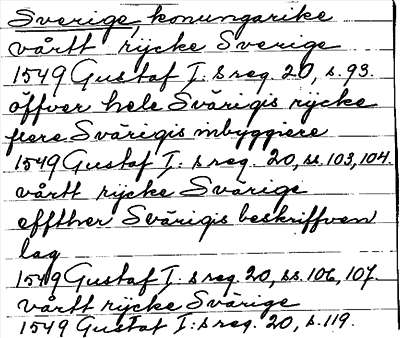 Sverige, konungarike
vårtt rijcke Sverige
1549 Gustaf I:s reg. 20, s. 93.
öffver hele Svärigis rijcke
flere Svärigis inbyggiere
1549 Gustaf I:s reg. 20, ss. 103, 104.
vårtt rijcke Svärige
effther Svärigis beskriffven
lag
1549 Gustaf I:s reg. 20, ss. 106, 107.
vårtt rijcke Svärige
1549 Gustaf I:s reg. 20, s. 119.